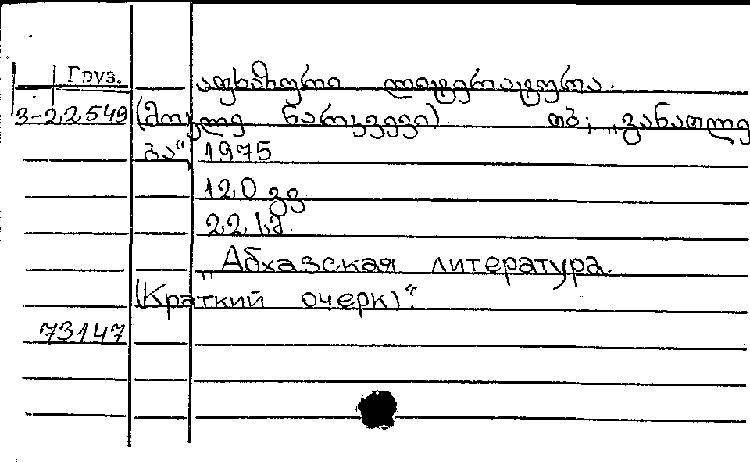 Груз. აფხაზური ლიტერატურა.
3-22549 (მოკლე ნარკვევი) თბ; „განათლე
ბა“ 1975
120 გვ
22 სმ
„Абхазская литература.
(Краткий очерк)“.
73147